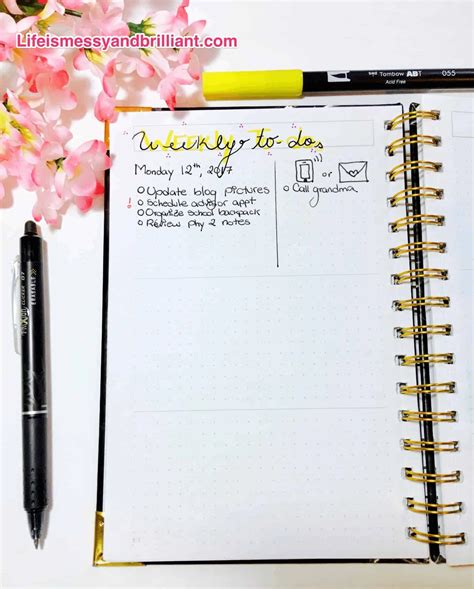 Lifeismessyandbrilliant.com
Tombow ABT 055
Acid Free
Weekly to-dos
Monday 12th, 2017
or
Update blog pictures
Call grandma
! Schedule advisor appt
Organize school backpack
Review Phy 2 notes